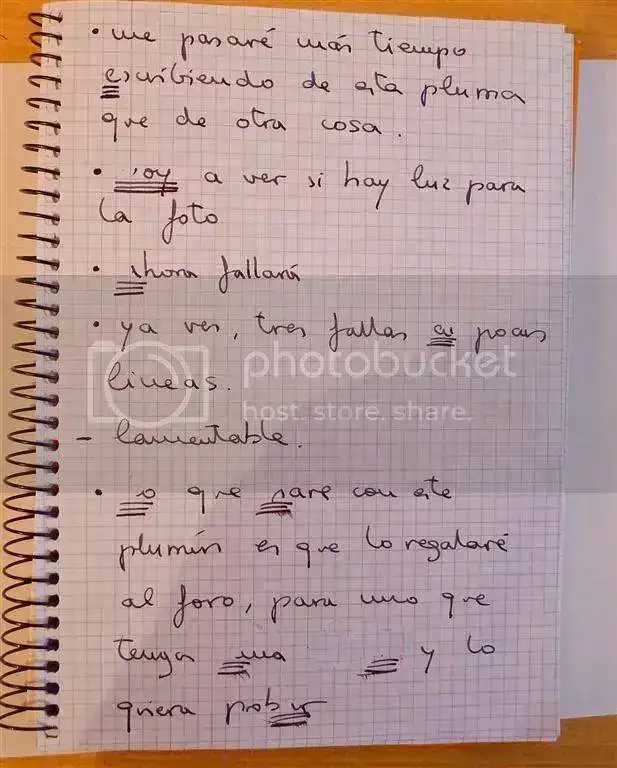 • me pasaré más tiempo
escribiendo de esta pluma
que de otra cosa.
• oy a ver si hay luz para
la foto
• ahora fallará
• ya ves, tres fallas en pocas
photobucket
lineas.
host. store. share.
- lamentable.
• o que hare con este
plumín es que lo regalaré
al foro, para uno que
tenga una y lo
quiera probar